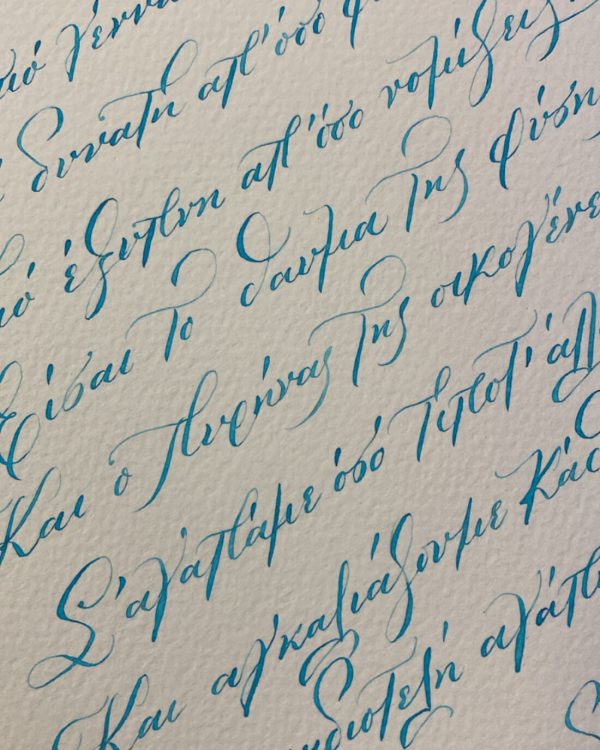 δυνατή απ' όσο
έξυπνη απ' όσο νομίζεις
Είσαι το θαύμα της φύση
Και ο πυρήνας της οικογένε
Σ' αγαπάμε όσο τίποτ' άλλ
Και αγκαλιάζουμε κάθ
αγάπη